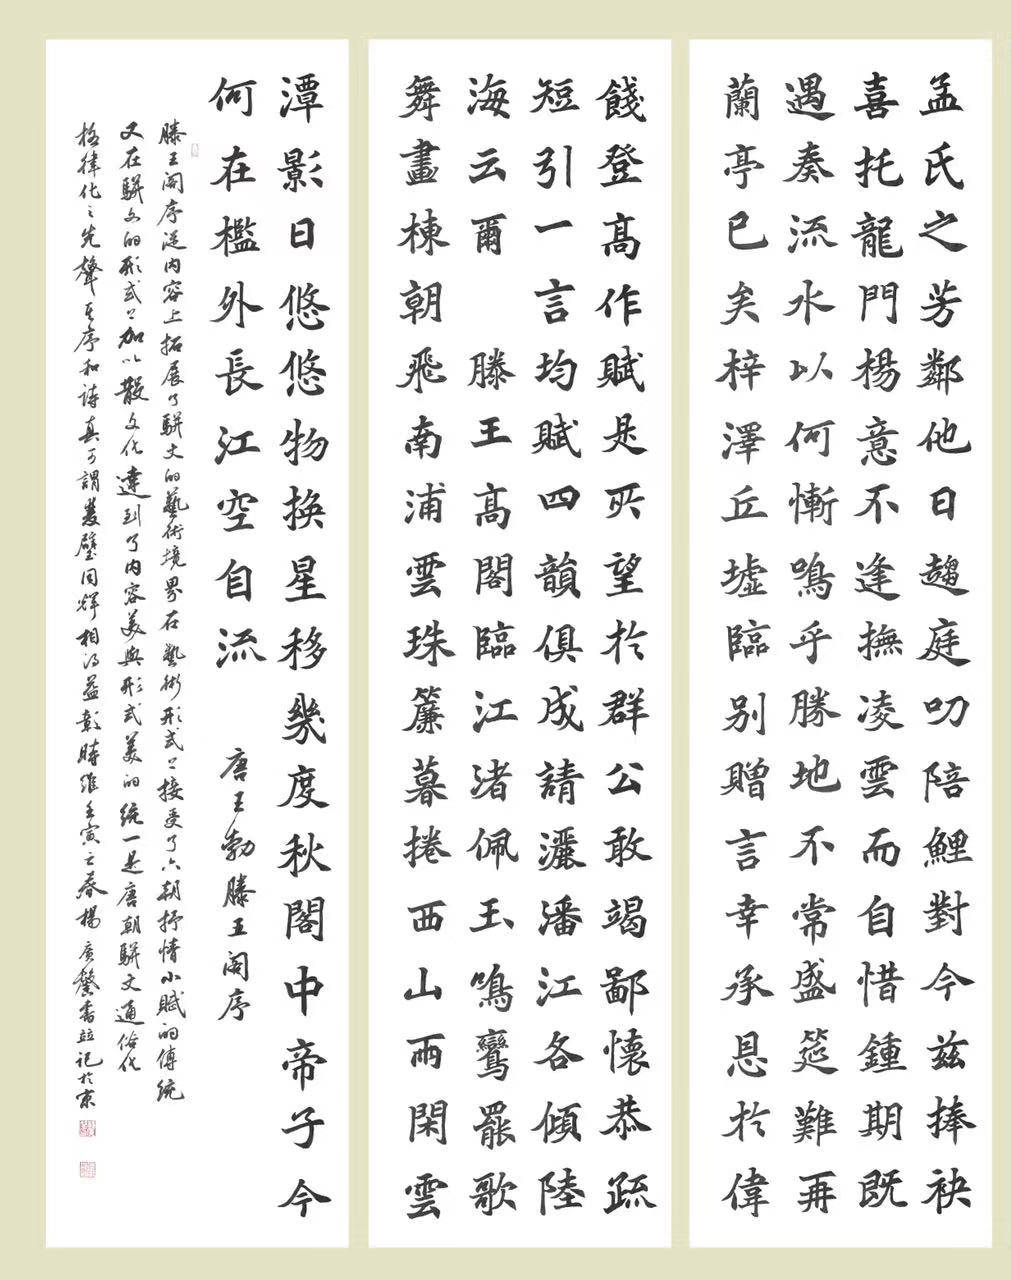 孟氏之芳鄰他日趨庭叨陪鯉對今兹捧袂
喜托龍門楊意不逢撫凌雲而自惜鍾期既
遇奏流水以何慚鳴乎勝地不常盛筵難再
蘭亭已矣梓澤丘墟臨别贈言幸承恩於偉
餞登髙作賦是所望於群公敢竭鄙懷恭疏
短引一言均賦四韻俱成請灑潘江各傾陸
海云爾 滕王高閣臨江渚佩玉鳴鸞罷歌
舞畫棟朝飛南浦雲珠簾暮捲西山雨閑雲
潭影日悠悠物換星移幾度秋閣中帝子今
何在檻外長江空自流 唐王勃滕王閣序
滕王閣序從内容上拓展了駢文的藝術境界在藝術形式上接受了六朝抒情小賦的傳統
又在駢文的形式上加以散文化達到了内容美與形式美的統一是唐朝駢文通俗化
格律化之先聲其序和詩真可謂雙璧同輝相得益彰時維壬寅之春楊廣馨書並記於京